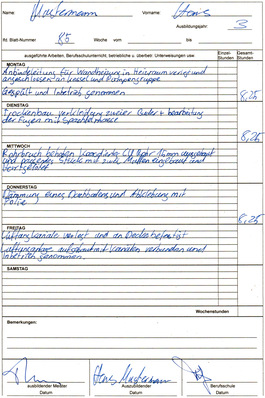 Name: Mustermann Vorname: Hans
Ausbildungsjahr: 3
lfd. Blatt-Nummer 85 Woche vom bis
ausgeführte Arbeiten, Berufsschulunterricht, betriebliche u. überbetr. Unterweisungen usw. Einzel-Stunden Gesamt-Stunden
MONTAG
Anbindeleitung für in Heizraum verlegt und
angeschlossen an Kessel und Pumpengruppe
Gespült und Inbetrieb genommen 8,25
DIENSTAG
Trockenbau verkleidung zweier Bäder + bearbeitung
der Fugen mit Spachtelmasse 8,25
MITTWOCH
Rohrbruch behoben CU Rohr 15mm
und passendes Stück mit Muffen eingesetzt und
8,25
DONNERSTAG
Dämmung eines Dachbodens und Abklebung mit
Folie
8,25
FREITAG
Lüftungskanäle verlegt und an Decke befestigt
Lüftungsanlage mit Kanälen verbunden und
Inbetrieb genommen.
SAMSTAG
Wochenstunden
Bemerkungen:
Hans Mustermann
ausbildender Meister Auszubildender Berufsschule
Datum Datum Datum